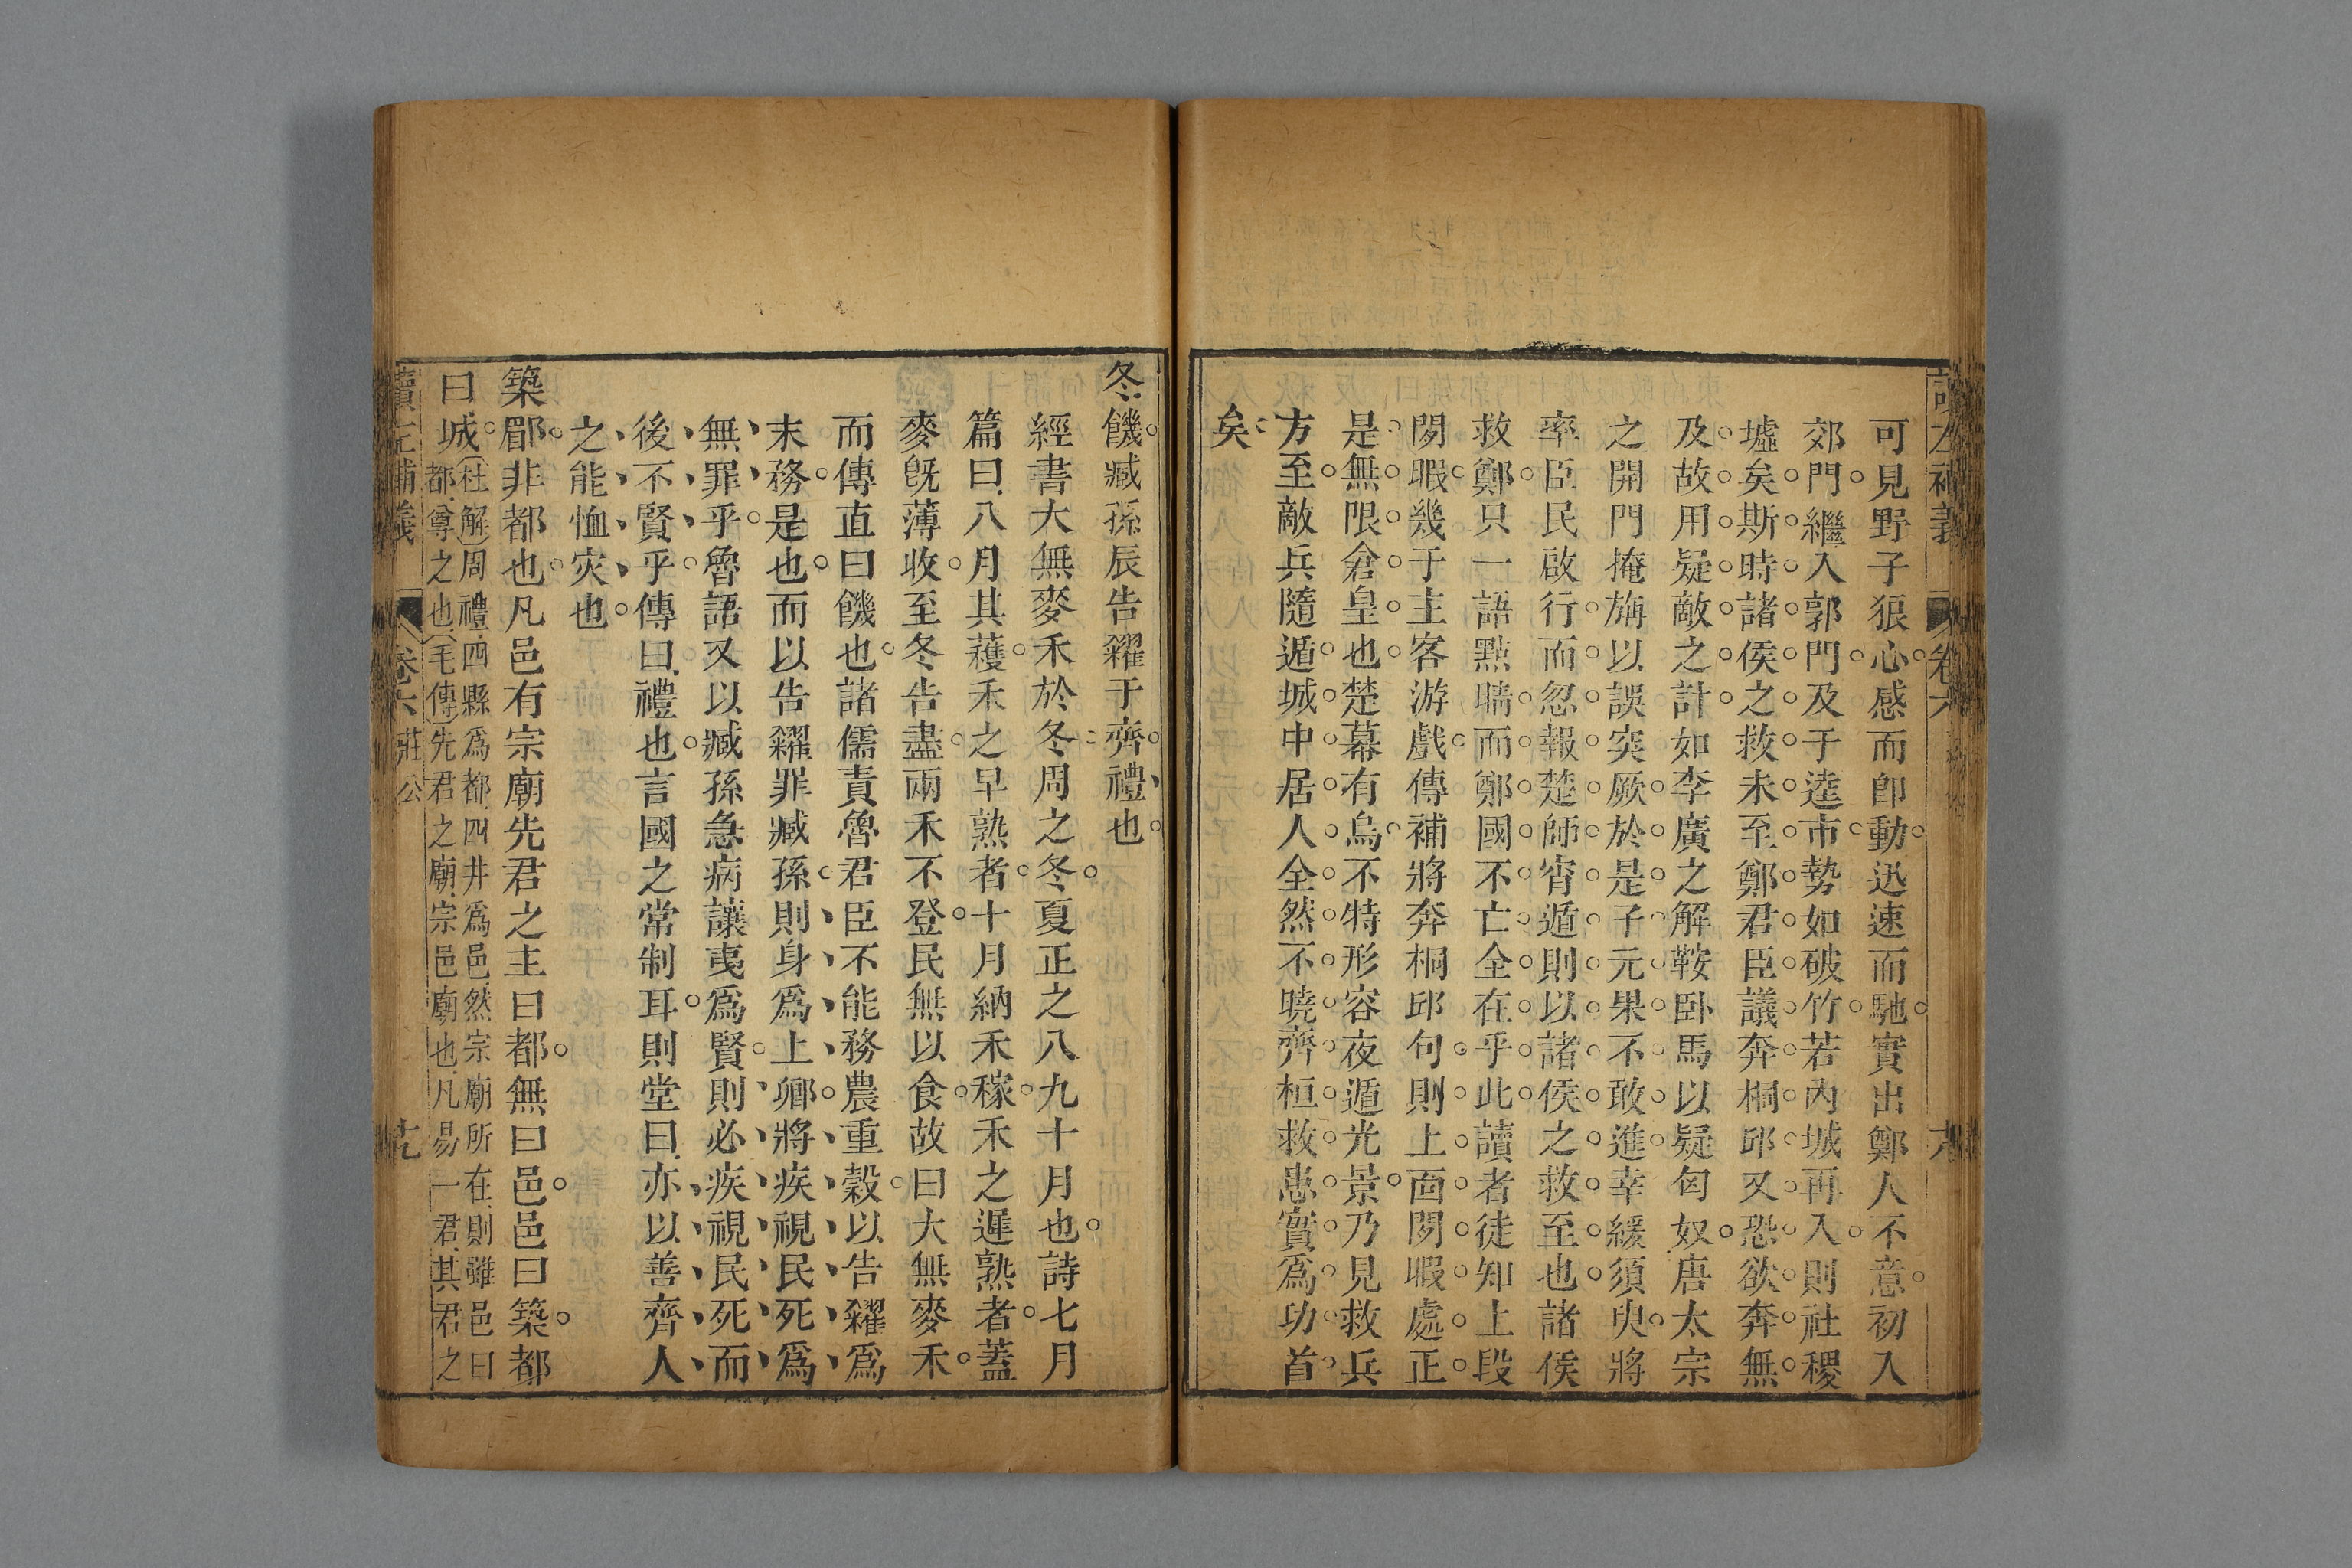 可見野子狼心感而卽動迅速而馳實出鄭人不意初入
郊門繼入郭門及于逵市勢如破竹若內城再入則社稷
墟矣斯時諸侯之救未至鄭君臣議奔桐邱又恐欲奔無
及故用疑敵之計如李廣之解鞍臥馬以疑匈奴唐太宗
之開門掩旃以誤突厥於是子元果不敢進幸緩須臾將
率臣民啟行而忽報楚師宵遁則以諸侯之救至也諸侯
救鄭只一語點睛而鄭國不亡全在乎此讀者徒知上段
閑暇幾于主客游戲傳補將奔桐邱句則上面閑暇處正
是無限倉皇也楚幕有烏不特形容夜遁光景乃見救兵
方至敵兵隨遁城中居人全然不曉齊桓救患實爲功首
矣
冬饑臧孫辰告糴于齊禮也
經書大無麥禾於冬周之冬夏正之八九十月也詩七月
篇曰八月其穫禾之早熟者十月納禾稼禾之遲熟者蓋
麥旣薄收至冬告盡兩禾不登民無以食故曰大無麥禾
而傳直曰饑也諸儒責魯君臣不能務農重穀以告糴爲
末務是也而以告糴罪臧孫則身爲上卿將疾視民死爲
無罪乎魯語又以臧孫急病讓夷爲賢則必疾視民死而
後不賢乎傳曰禮也言國之常制耳則堂曰亦以善齊人
之能恤灾也
築郿非都也凡邑有宗廟先君之主曰都無曰邑邑曰築都
曰城杜解周禮四縣爲都四井爲邑然宗廟所在則雖邑曰
都尊之也毛傳先君之廟宗邑廟也凡易一君其君之
讀左補義 卷六 莊公 十九